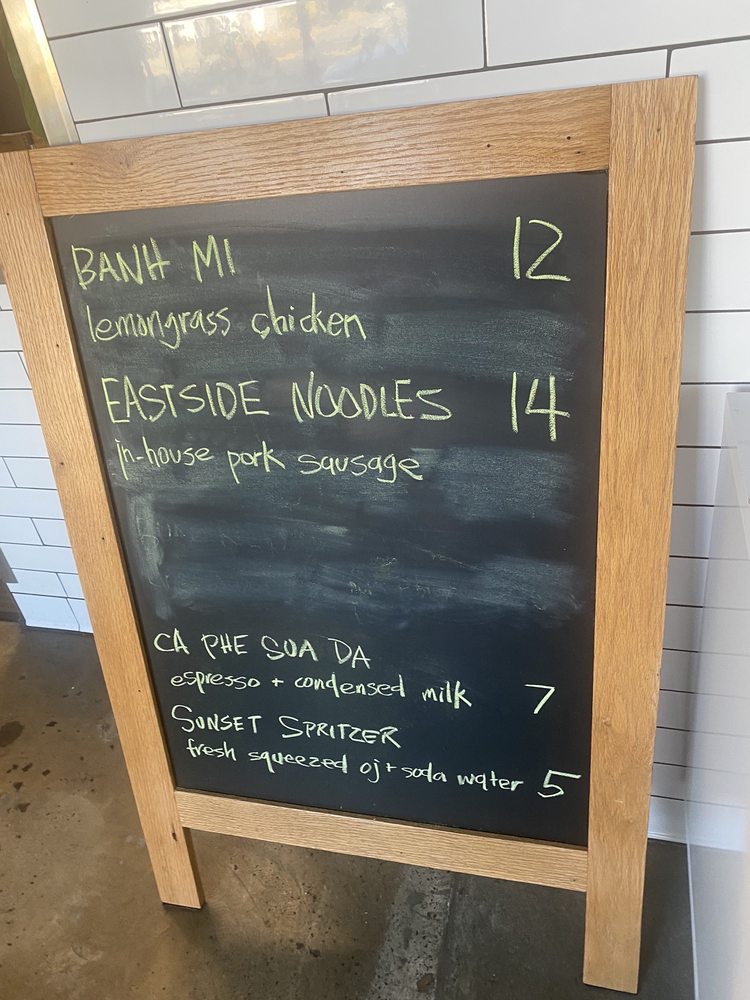 BANH MI 12
lemongrass chicken
EASTSIDE NOODLES 14
in-house pork sausage
CA PHE SUA DA
espresso + condensed milk 7
SUNSET SPRITZER
fresh squeezed oj + soda water 5